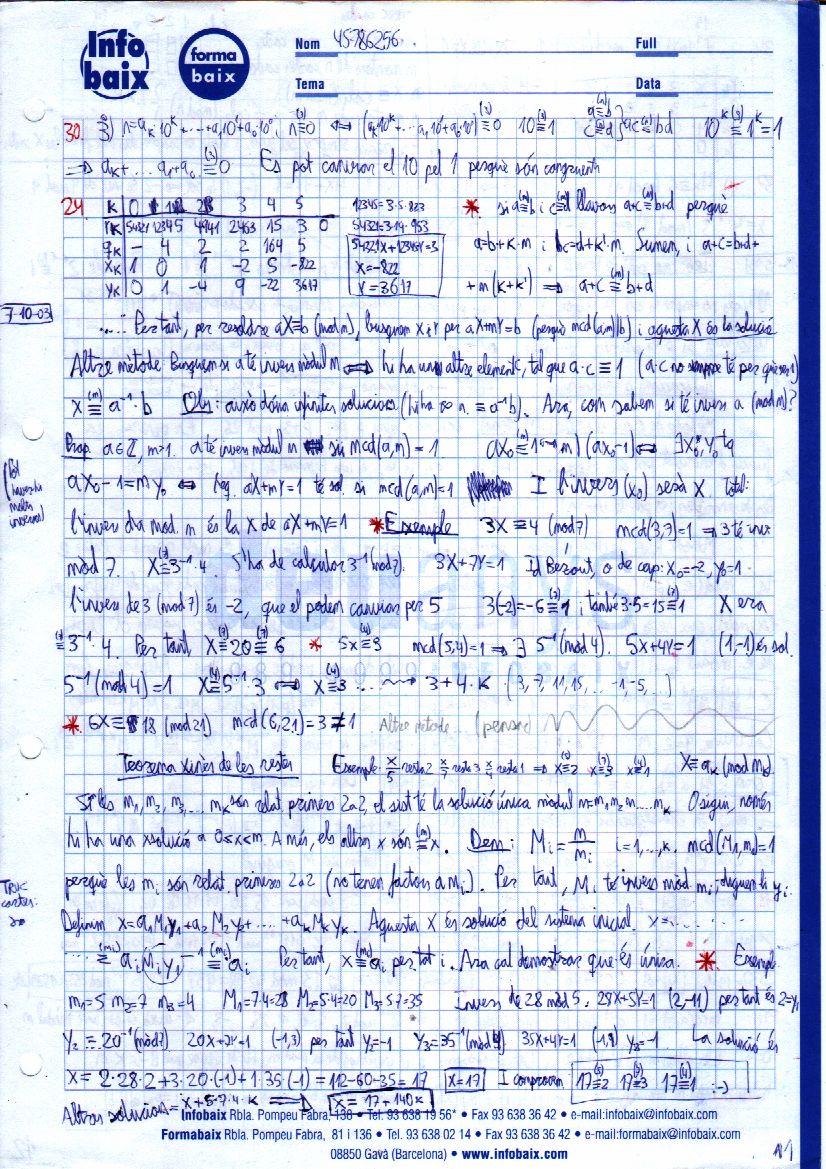 Info baix
forma baix
Nom 45786256
Full
Tema
Data
30. 3) n=aₖ·10ᵏ+...+a₁10¹+a₀10⁰ i n≡0 ⟺ (aₖ·10ᵏ+...a₁10¹+a₀10⁰)≡0 10≡1 ac≡bd 10ᵏ≡1ᵏ=1
⇒ aₖ+...a₁+a₀≡0 Es pot canviar el 10 pel 1 perquè són congruents
24. K 0 1 2 3 4 5 12345=3·5·823 * si a≡b i c≡d llavors a+c≡b+d perquè
rK 54321 12345 4941 2463 15 3 0 54321=3·19·953
qK - 4 2 2 164 5 54321X+12345Y=3 a=b+k·m i c=d+k'·m. Sumem, i a+c=b+d+
xK 1 0 1 -2 5 -822 X=-822
yK 0 1 -4 9 -22 3617 Y=3617 +m(k+k') ⇒ a+c≡b+d
7-10-03
Per tant, per resoldre aX≡b (mod m), busquem X i Y per aX+mY=b (perquè mcd(a,m)|b) i aquesta X és la solució
Altre mètode: Busquem si a té invers mòdul m ⟺ hi ha un altre element c, tal que a·c≡1 (a·c no sempre té per què ser 1)
X≡a⁻¹·b Obs: això dóna infinites solucions (hi ha ∞ n.≡a⁻¹b). Ara, com sabem si té invers a (mod m)?
Prop. a∈Z, m>1. a té invers mòdul m sii mcd(a,m)=1 (ax₀-1) ⟺ ∃x₀,y₀ tq
ax₀-1=my₀ ⟺ aX+mY=1 té sol. sii mcd(a,m)=1 I l'invers (x₀) serà X. Total:
l'invers d'a mod. m és la X de aX+mY=1 * Exemple 3X≡4 (mod 7) mcd(3,7)=1 ⇒ 3 té inv.
mòd 7. X≡3⁻¹·4. S'ha de calcular 3⁻¹(mod 7). 3X+7Y=1 Id Bézout, o de cap: x₀=-2, y₀=1.
l'invers de 3 (mod 7) és -2, que el podem canviar per 5 3(-2)=-6≡1 i també 3·5=15≡1 X era
≡3⁻¹·4. Per tant X≡20≡6 * 5x≡3 mcd(5,4)=1 ⇒ ∃ 5⁻¹(mod 4). 5x+4Y=1 (1,-1) és sol.
5⁻¹(mod 4)=1 X≡5⁻¹·3 ⟺ X≡3 ... 3+4·k (3,7,11,15,...-1,-5,...)
* 6X≡18 (mod 21) mcd(6,21)=3≠1 Altre mètode... (pensar)
Teorema xinès de les restes Exemple: x/5 resta 2 x/7 resta 3 x/4 resta 1 ⇒ x≡2 x≡3 x≡1 X≡aₖ (mod mₖ).
Si les m₁,m₂,m₃,... mₖ són relat. primeres 2 a 2, el sist té la solució única mòdul m=m₁m₂...mₖ. O sigui, només
hi ha una x solució a 0≤x<m. A més, els altres x són ≡x. Dem: Mᵢ=m/mᵢ i=1,...,k. mcd(Mᵢ,mᵢ)=1
perquè les mᵢ són relat. primeres 2 a 2 (no tenen factors a Mᵢ). Per tant, Mᵢ té invers mòd. mᵢ, diguem-li yᵢ.
Truc cartes:
Definim x=a₁M₁y₁+a₂M₂y₂+...+aₖMₖyₖ. Aquesta X és solució del sistema inicial.
Per tant, x≡aᵢ per tot i. Ara cal demostrar que és única. * Exemple
m₁=5 m₂=7 m₃=4 M₁=7·4=28 M₂=5·4=20 M₃=5·7=35 Invers de 28 mod 5. 28X+5Y=1 (2,-11) per tant és 2=y₁
Y₂=20⁻¹(mòd 7) 20X+7Y=1 (-1,3) per tant Y₂=-1 Y₃=35⁻¹(mod 4) 35X+4Y=1 (-1,9) y₃=-1. La solució és
X=2·28·2+3·20·(-1)+1·35·(-1)=112-60-35=17 X=17 I comprovem 17≡2 17≡3 17≡1 :-)
Altres solucions=x+5·7·4·k ⟹ X=17+140k
Infobaix Rbla. Pompeu Fabra, 136 • Tel. 93 638 19 56* • Fax 93 638 36 42 • e-mail:infobaix@infobaix.com
Formabaix Rbla. Pompeu Fabra, 81 i 136 • Tel. 93 638 02 14 • Fax 93 638 36 42 • e-mail:formabaix@infobaix.com
08850 Gavà (Barcelona) • www.infobaix.com